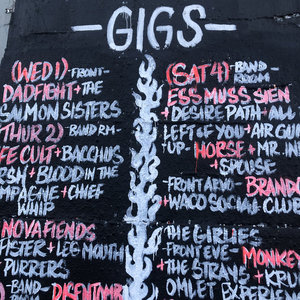 -GIGS-
(WED 1) -FRONT-
DADFIGHT + THE
SALMON SISTERS
THUR 2) BAND RM-
FE CULT + BACCHUS
RSM + BLOOD IN THE
MPAGNE + CHIEF
WHIP
NOVA FIENDS
FISTER + LEG MOUTH
PURRERS
) -BAND-
(SAT 4) -BAND-
ROOM
ESS MUSS SIEN
+ DESIRE PATH + ALL
LEFT OF YOU + AIR GUN
-UP- HORSE + MR. IN
+ SPOUSE
-FRONT ARVO- BRAND
+ WACO SOCIAL CLUB
THE GIRLIES
FRONT EVE - MONKEY
+ THE STRAYS + KRU
OMLET EXPERI